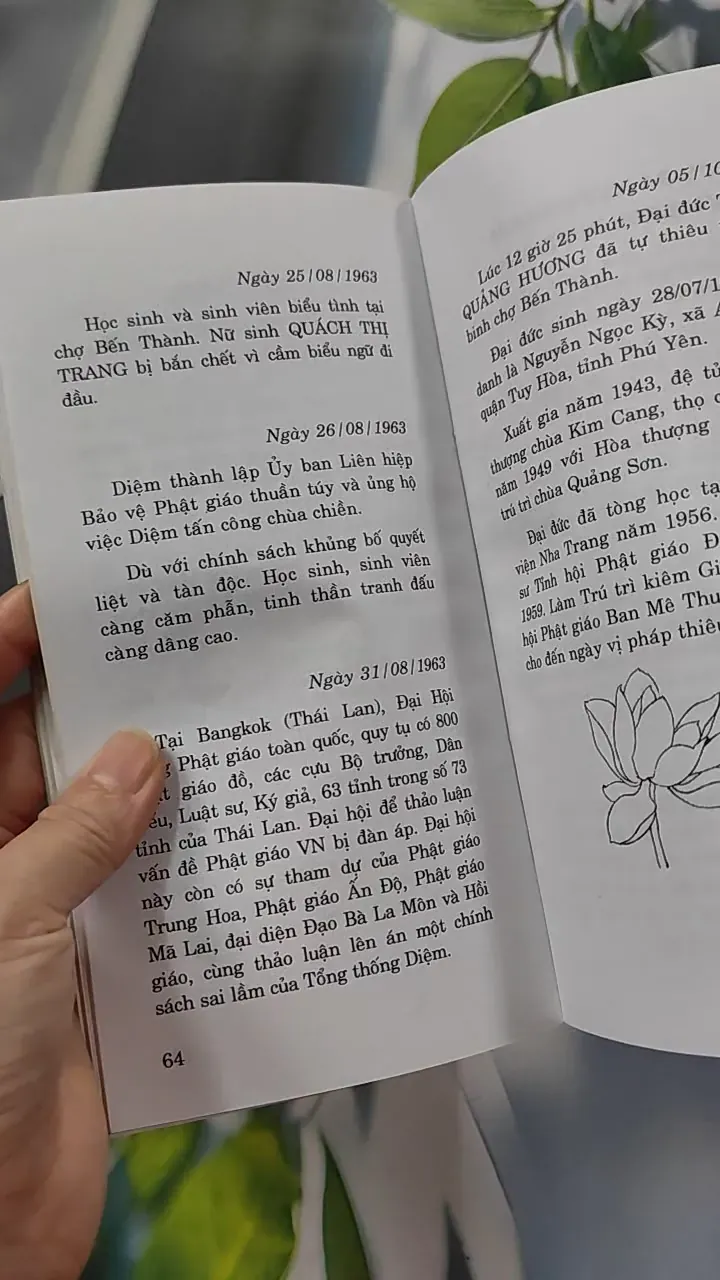 Ngày 25/08/1963
Học sinh và sinh viên biểu tình tại
chợ Bến Thành. Nữ sinh QUÁCH THỊ
TRANG bị bắn chết vì cầm biểu ngữ đi
đầu.
Ngày 26/08/1963
Diệm thành lập Ủy ban Liên hiệp
Bảo vệ Phật giáo thuần túy và ủng hộ
việc Diệm tấn công chùa chiền.
Dù với chính sách khủng bố quyết
liệt và tàn độc. Học sinh, sinh viên
càng căm phẫn, tinh thần tranh đấu
càng dâng cao.
Ngày 31/08/1963
Tại Bangkok (Thái Lan), Đại Hội
Phật giáo toàn quốc, quy tụ có 800
giáo đồ, các cựu Bộ trưởng, Dân
Luật sư, Ký giả, 63 tỉnh trong số 73
tỉnh của Thái Lan. Đại hội để thảo luận
vấn đề Phật giáo VN bị đàn áp. Đại hội
này còn có sự tham dự của Phật giáo
Trung Hoa, Phật giáo Ấn Độ, Phật giáo
Mã Lai, đại diện Đạo Bà La Môn và Hồi
giáo, cùng thảo luận lên án một chính
sách sai lầm của Tổng thống Diệm.
64
Ngày 05/10
Lúc 12 giờ 25 phút, Đại đức
QUẢNG HƯƠNG đã tự thiêu
binh chợ Bến Thành.
Đại đức sinh ngày 28/07/1
danh là Nguyễn Ngọc Kỳ, xã
quận Tuy Hòa, tỉnh Phú Yên.
Xuất gia năm 1943, đệ tử
thượng chùa Kim Cang, thọ
năm 1949 với Hòa thượng
trú trì chùa Quảng Sơn.
Đại đức đã tòng học tạ
viện Nha Trang năm 1956.
sư Tỉnh hội Phật giáo Đ
1959. Làm Trú trì kiêm Gi
hội Phật giáo Ban Mê Thu
cho đến ngày vị pháp thiê